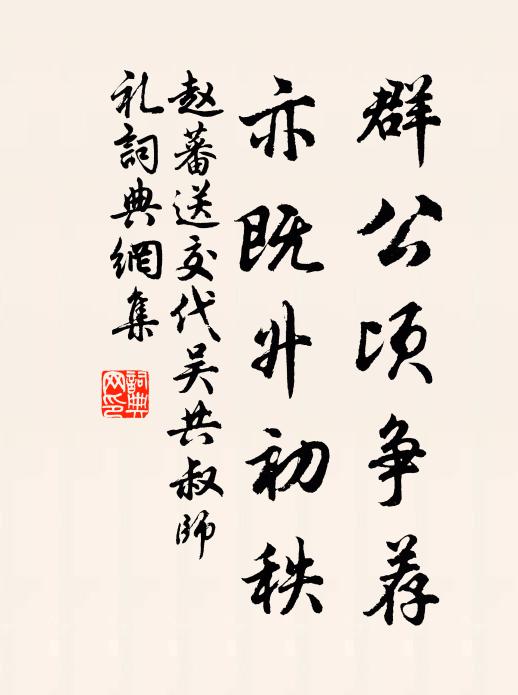 群公顷争荐
亦既升初秩
赵蕃送交代吴共叔师
礼詞典網集
詞典网印